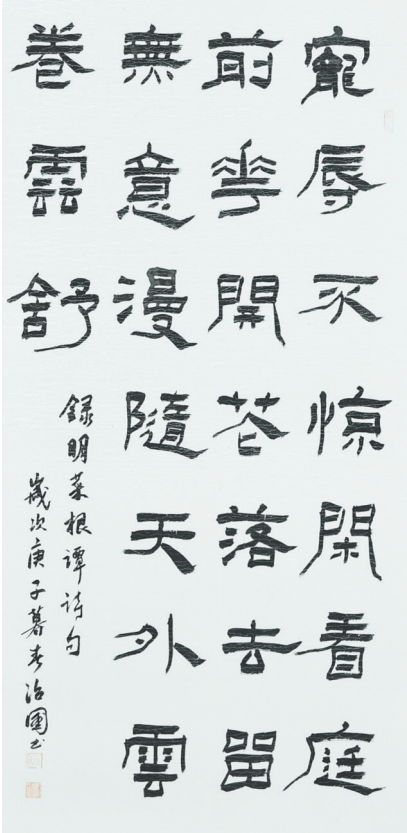 寵辱不惊閑看庭
前華開花落去留
無意漫隨天外雲
卷雲舒
録明菜根谭诗句
歲次庚子暮春治國书